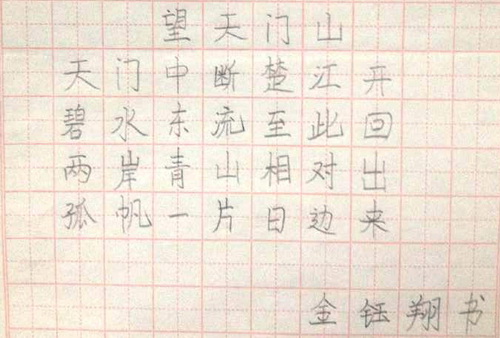 望天门山
天门中断楚江开
碧水东流至此回
两岸青山相对出
孤帆一片日边来
金钰翔书